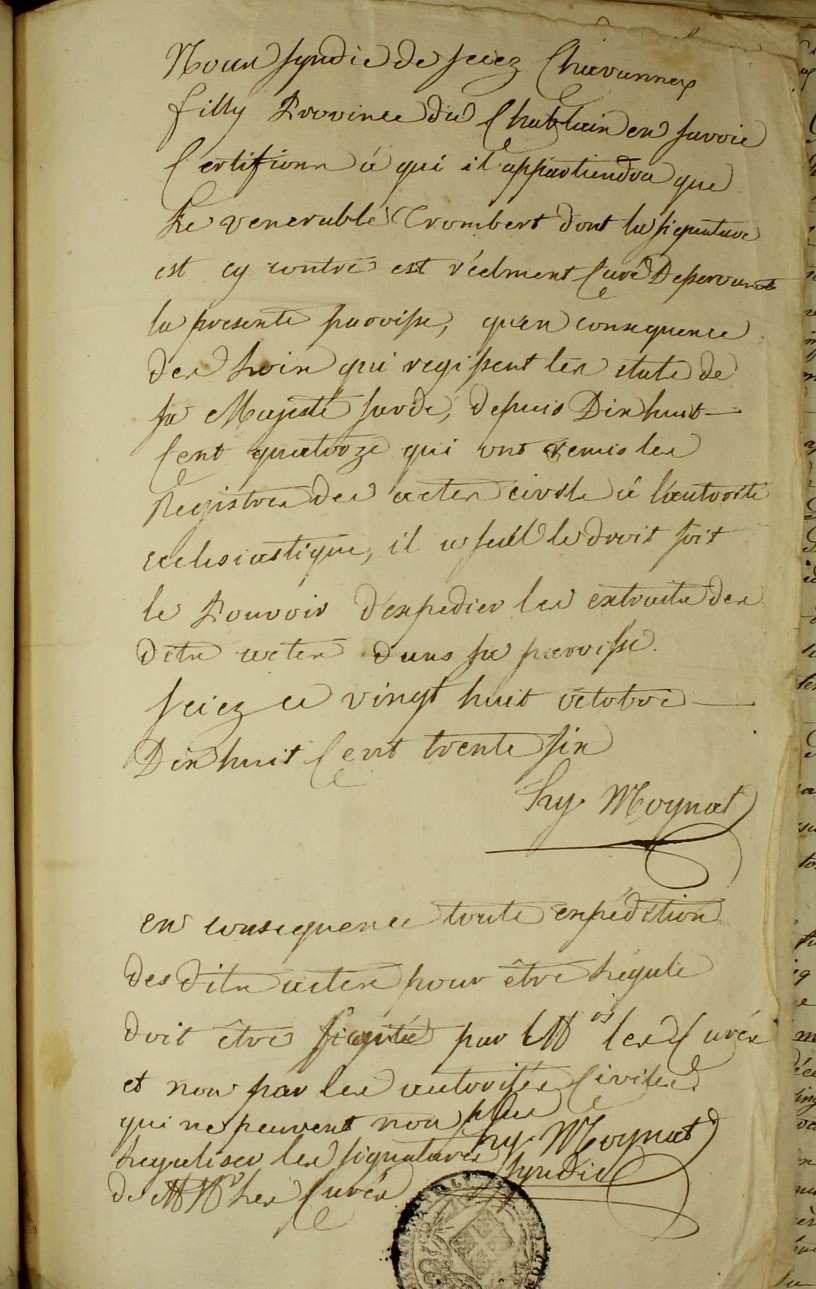 Nous syndic de sciez Chavannex
filly Province du Chablais en savoie
Certifions à qui il appartiendra que
Le venerable Trombert dont la signature
est cy contre est réelment Curé Desservant
la presente paroisse, qu'en consequence
des Loix qui regissent les etats de
sa Majesté sarde, depuis Dix huit
Cent quatorze qui ont remis les
Registres des actes civils à l'autorité
ecclesiastique, il a seul le droit soit
le Pouvoir d'expedier les extraits des
dits actes dans sa paroisse.
sciez ce vingt huit octobre
Dix huit Cent trente six
hy. Moynat
en consequence toute expédition
des dits actes pour être Légale
doit être signée par MM rs les Curés
et non par les autorités Civiles
qui ne peuvent non plus
Legaliser les signatures
de MM rs Les Curés
hy. Moynat
syndic